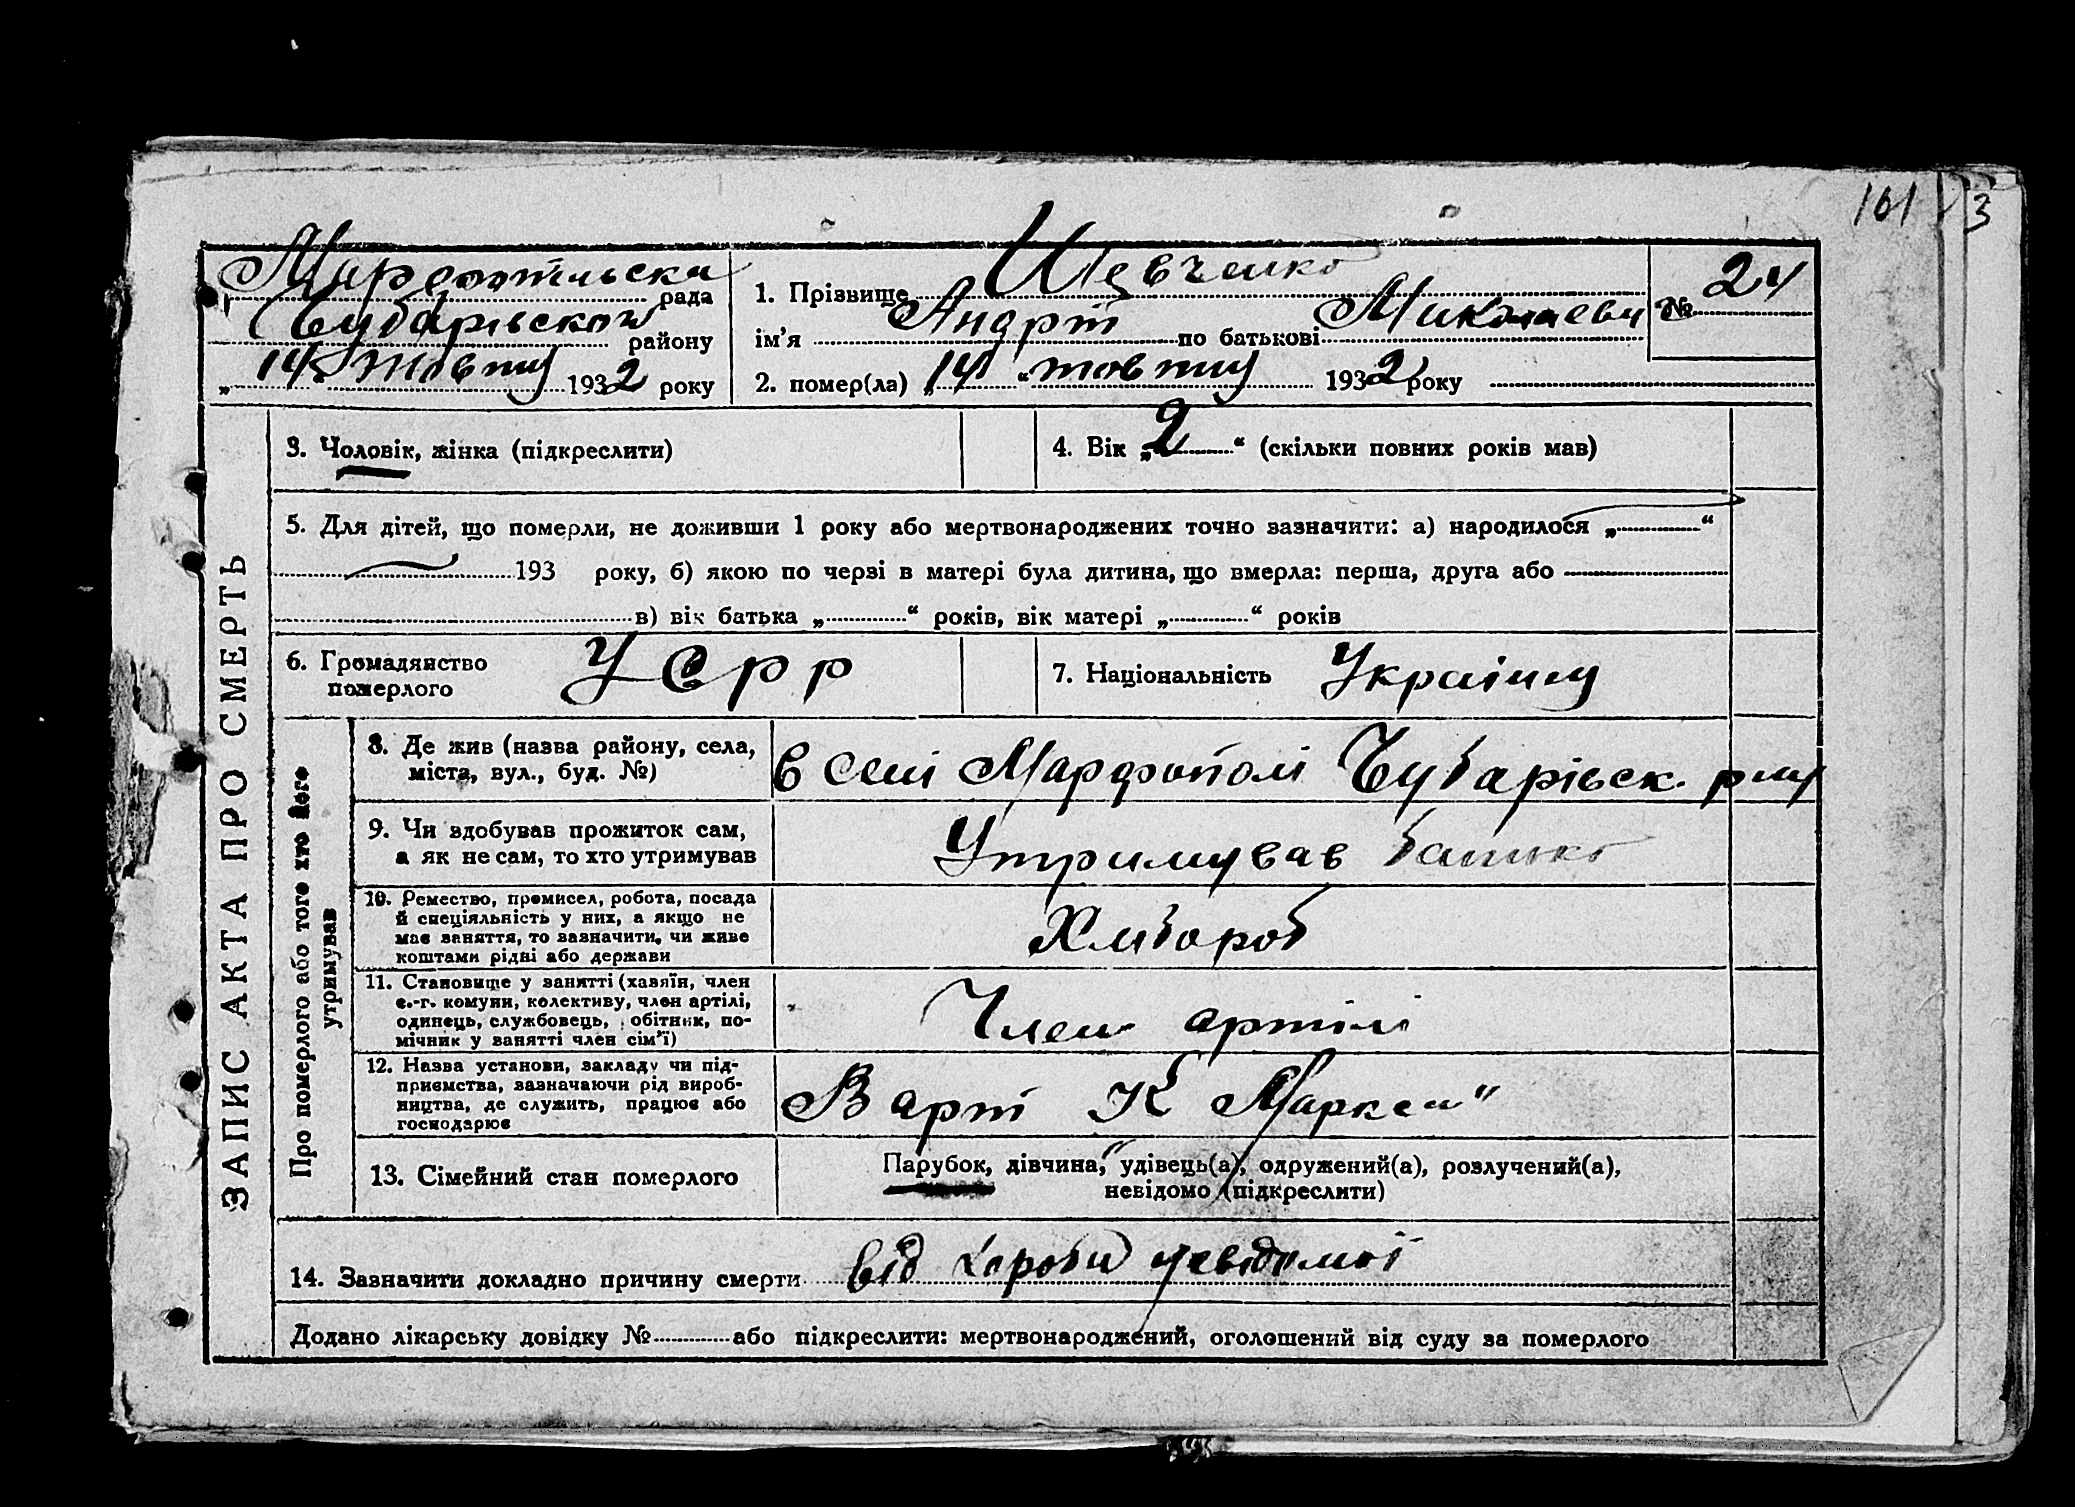 161 3
Марфопільска рада
Чубарівском району
„ 14 " жовтня 1932 року
1. Прізвище Шевченко
ім'я Андрій по батькові Миколаєви
2. помер(ла) „ 14 “ жовтня 1932 року
№ 24
ЗАПИС АКТА ПРО СМЕРТЬ
3. Чоловік, жінка (підкреслити)
4. Вік „ 2 “ (скільки повних років мав)
5. Для дітей, що померли, не доживши 1 року або мертвонароджених точно зазначити: а) народилося „ “
193 року, б) якою по черзі в матері була дитина, що вмерла: перша, друга або
в) вік батька „ “ років, вік матері „ “ років
6. Громадянство
померлого
УСРР
7. Національність Україну
Про померлого або того хто його
утримував
8. Де жив (назва району, села,
міста, вул., буд. №)
в селі Марфополі Чубарівск. р-ну
9. Чи здобував прожиток сам,
а як не сам, то хто утримував
Утримував батько
10. Ремество, промисел, робота, посада
й спеціяльність у них, а якщо не
має заняття, то зазначити, чи живе
коштами рідні або держави
Хлібороб
11. Становище у занятті (хазяїн, член
с.-г. комуни, колективу, член артілі,
одинець, службовець, обітник, по-
мічник у занятті член сім'ї)
Член артілі
12. Назва установи, закладу чи під-
приємства, зазначаючи рід вироб-
ництва, де служить, працює або
господарює
В арт К Маркса"
13. Сімейний стан померлого
Парубок, дівчина, удівець(а), одружений(а), розлучений(а),
невідомо (підкреслити)
14. Зазначити докладно причину смерти від хороби невідомої
Додано лікарську довідку № або підкреслити: мертвонароджений, оголошений від суду за померлого